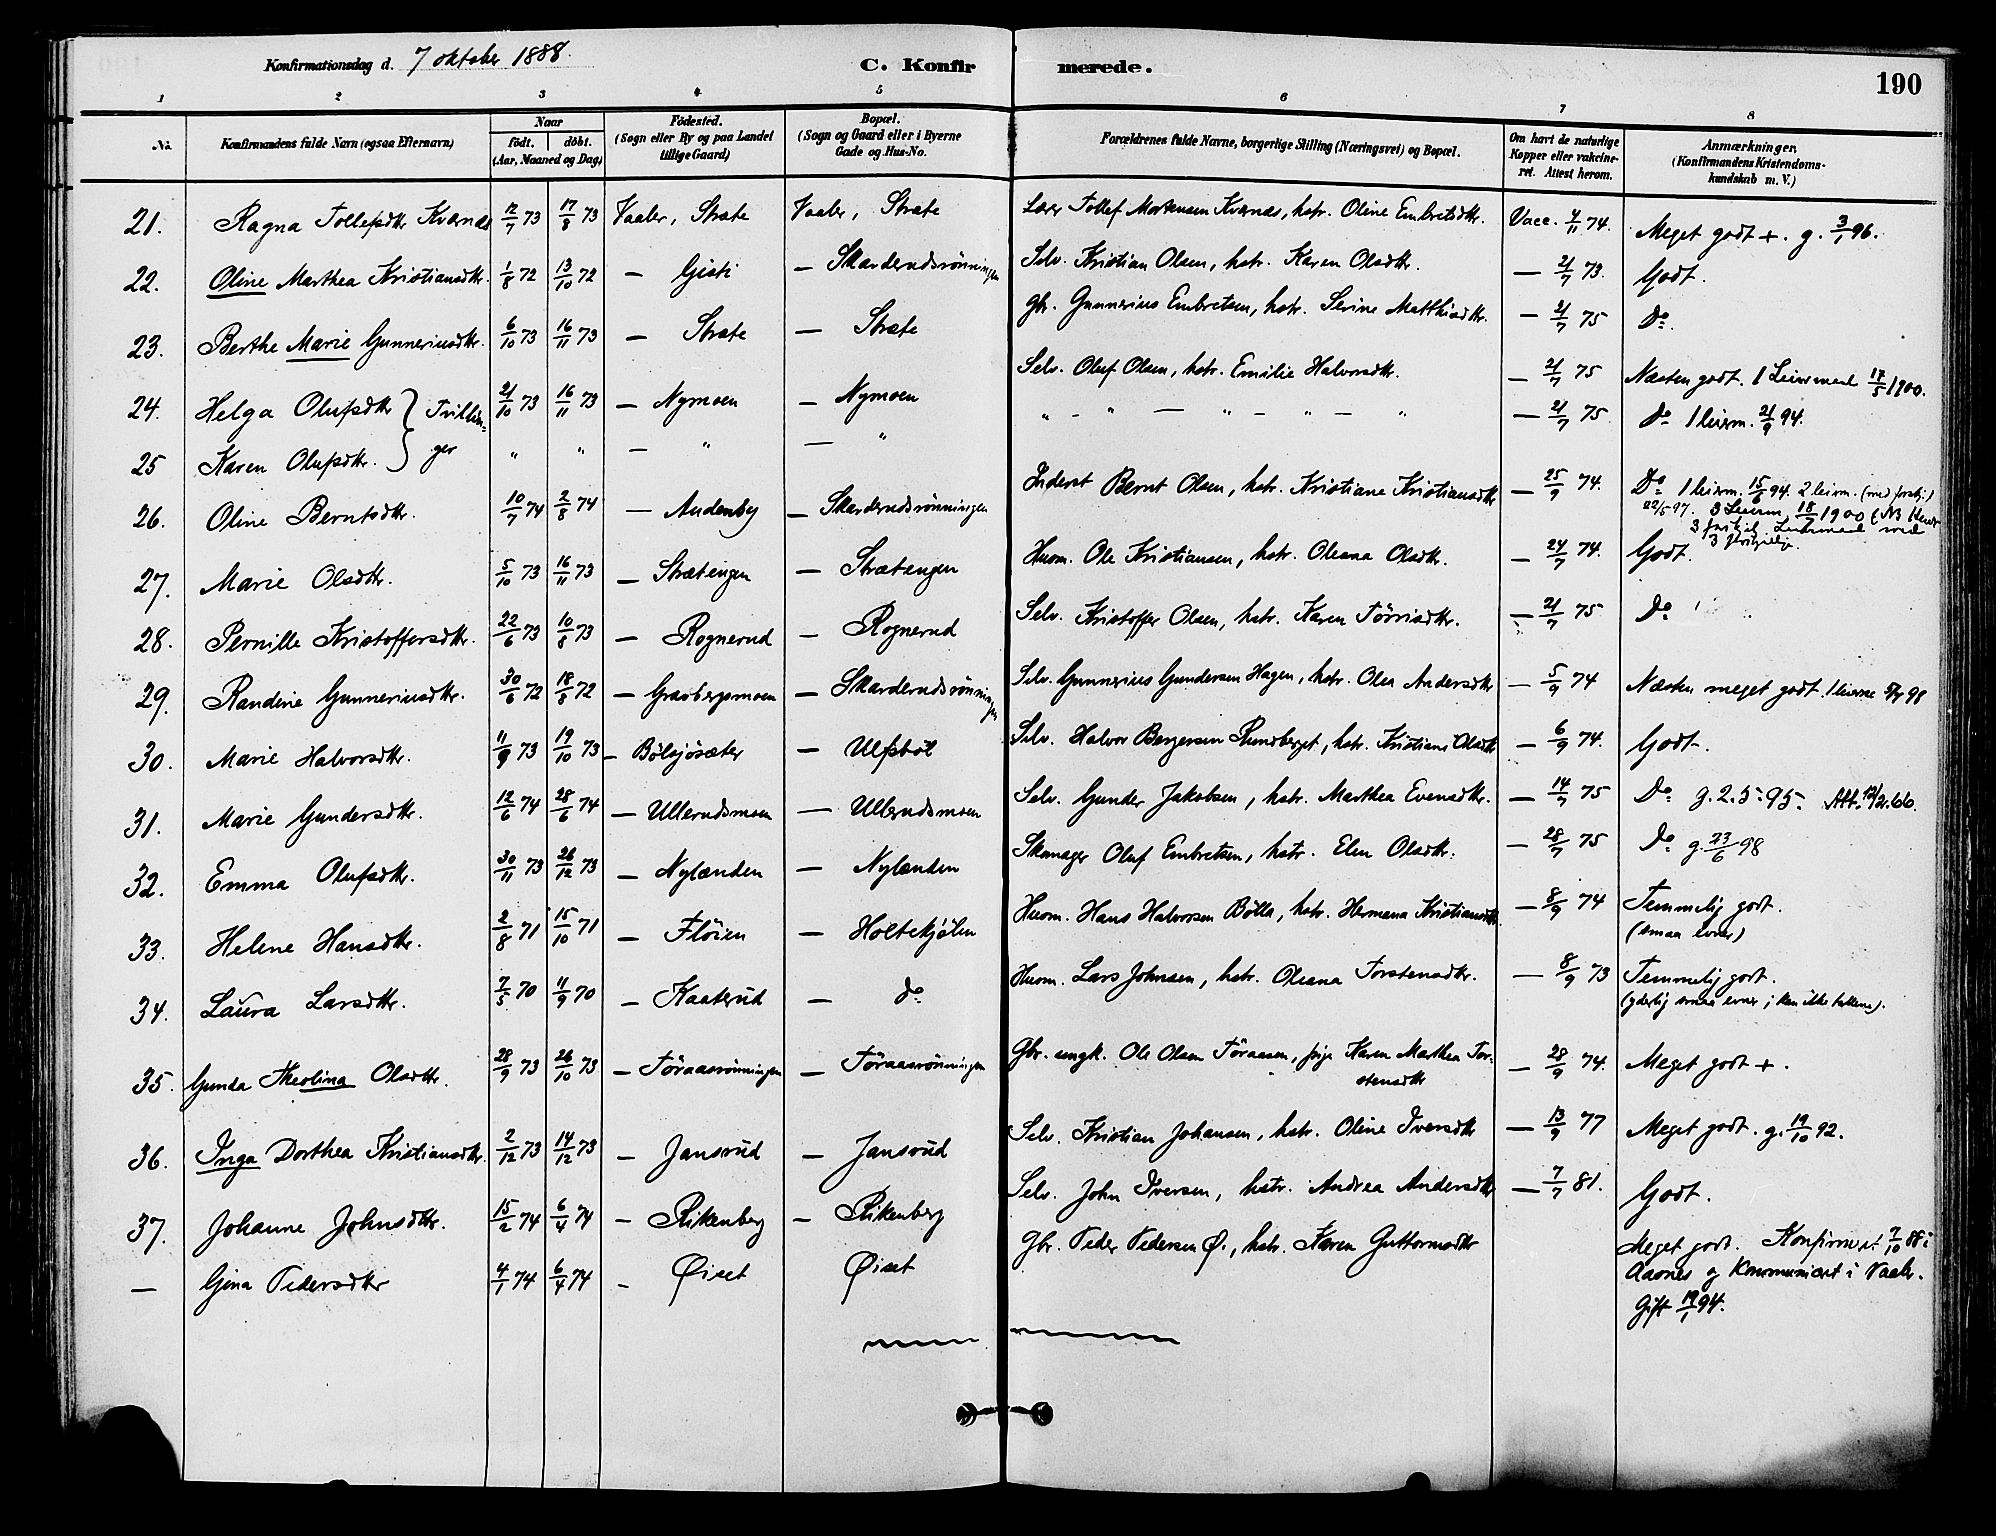 Konfirmationsdag d. 7 oktober 1888.
C. Konfirmerede.
190
1 2 3 4 5 6 7 8
No. | Konfirmandens fulde Navn (ogsaa Efternavn) | Naar födt. döbt. (Aar, Maaned og Dag) | Födested. (Sogn eller By og paa Landet tillige Gaard) | Bopæl. (Sogn og Gaard eller i Byerne Gade og Hus-No. | Forældrenes fulde Navne, borgerlige Stilling (Næringsvei) og Bopæl. | Om havt de naturlige Kopper eller vakcineret. Attest herom. | Anmærkninger. (Konfirmandens Kristendomskundskab m. V.)
21. Ragna Tollefsdtr Kvernæs 12/7 73 17/8 73 Vaaler, Stræte Vaaler, Stræte Lærer Tollef Mortensen Kvernæs, hstr. Oline Embretsdtr. Vacc. 4/11 74. Meget godt +. g. 3/1 96.
22. Oline Marthea Kristiansdtr. 1/8 72 13/10 72 — Gisti — Skarderudsrönningen Selv. Kristian Olsen, hstr. Karen Olsdtr. — 21/7 73. Godt.
23. Berthe Marie Gunneriusdtr. 6/10 73 16/11 73 — Stræte — Stræte Gbr. Gunnerius Embretsen, hstr. Serine Matthisdtr. — 21/7 75 Do.
24. Helga Olufsdtr } Tvillin= 21/10 73 16/11 73 — Nymoen — Nymoen Selv. Oluf Olsen, hstr. Emilie Halvorsdtr. — 21/7 75 Næsten godt. 1 Leiermaal 17/5 1900.
25 Karen Olufsdtr. } ger " " — " — " " - " — " - " — " — 21/7 75. Do 1 leierm. 21/9 94.
26. Oline Berntsdtr. 10/7 74 2/8 74 — Audenby — Skarderudsrönningen Inderst Bernt Olsen, hstr. Kristiane Kristiansdtr — 25/9 74. Do 1 leierm. 15/6 94. 2 leierm. (med forskj.)
22/5 97. 3 Leierm. 18/1 1900
27. Marie Olsdtr. 5/10 73 16/11 73 — Strætengen — Strætengen Husm. Ole Kristiansen, hstr. Oleana Olsdtr. — 24/7 74. Godt.
28. Pernille Kristoffersdtr. 22/6 73 10/8 73 — Rognerud — Rognerud Selv. Kristoffer Olsen, hstr. Karen Törrisdtr. — 21/7 75 Do
29. Randine Gunneriusdtr. 30/6 72 18/8 72 — Gravbergsmoen — Skarderudsrönningen Selv. Gunnerius Gundersen Hagen, hstr. Olea Andersdtr — 5/9 74 Næsten meget godt.
30. Marie Halvorsdtr. 11/9 73 19/10 73 — Bölsjösæter — Ulfsböl Selv. Halvor Bergersen Rundberget, hstr. Kristiane Olsdtr — 6/9 74. Godt.
31. Marie Gundersdtr. 12/6 74 28/6 74 — Ullerudsmoen — Ullerudsmoen Selv. Gunder Jakobsen, hstr. Marthea Evensdtr. — 14/7 75 Do g. 2.5.95. Att. 12/2.66.
32. Emma Olufsdtr. 30/11 73 26/12 73 — Nylænden — Nylænden Skomager Oluf Embretsen, hstr. Elen Olsdtr. — 28/7 75 Do g. 23/6 98
33. Helene Hansdtr. 2/8 71 15/10 71 — Flöien — Holtekjölen Husm. Hans Halvorsen Bölla, hstr. Hermana Kristiansdtr. — 8/9 74 Temmelig godt.
(smaa evner)
34. Laura Larsdtr. 7/5 70 11/9 70 — Kaaterud — do Husm. Lars Johnsen, hstr. Oleana Torstensdtr. — 8/9 73 Temmelig godt.
(yderlig smaa evner; kan ikke tallene).
35. Gunda Theolina Olsdtr. 28/9 73 26/10 73 — Föraasrönningen — Föraasrönningen Gbr. ungk. Ole Olsen Föraasen, pige Karen Marthea Tor=
stensdtr — 28/9 74. Meget godt +.
36. Inga Dorthea Kristiansdtr. 2/12 73 14/12 73 — Jansrud — Jansrud Selv. Kristian Johansen, hstr. Oline Iversdtr — 13/9 77 Meget godt. g. 19/10 92.
37. Johanne Johnsdtr. 15/2 74 6/4 74 — Rikenberg — Rikenberg Selv. John Iversen, hstr. Andrea Andersdtr — 7/7 81. Godt.
— Gina Pedersdtr 4/1 74 6/4 74 — Öiset Öiset Gbr. Peder Pedersen Ö., hstr. Karen Guttormsdtr Meget godt. Konfirmert 7/10 88 i
Aasnes og kommunicert i Vaaler.
Gift 19/1 94.